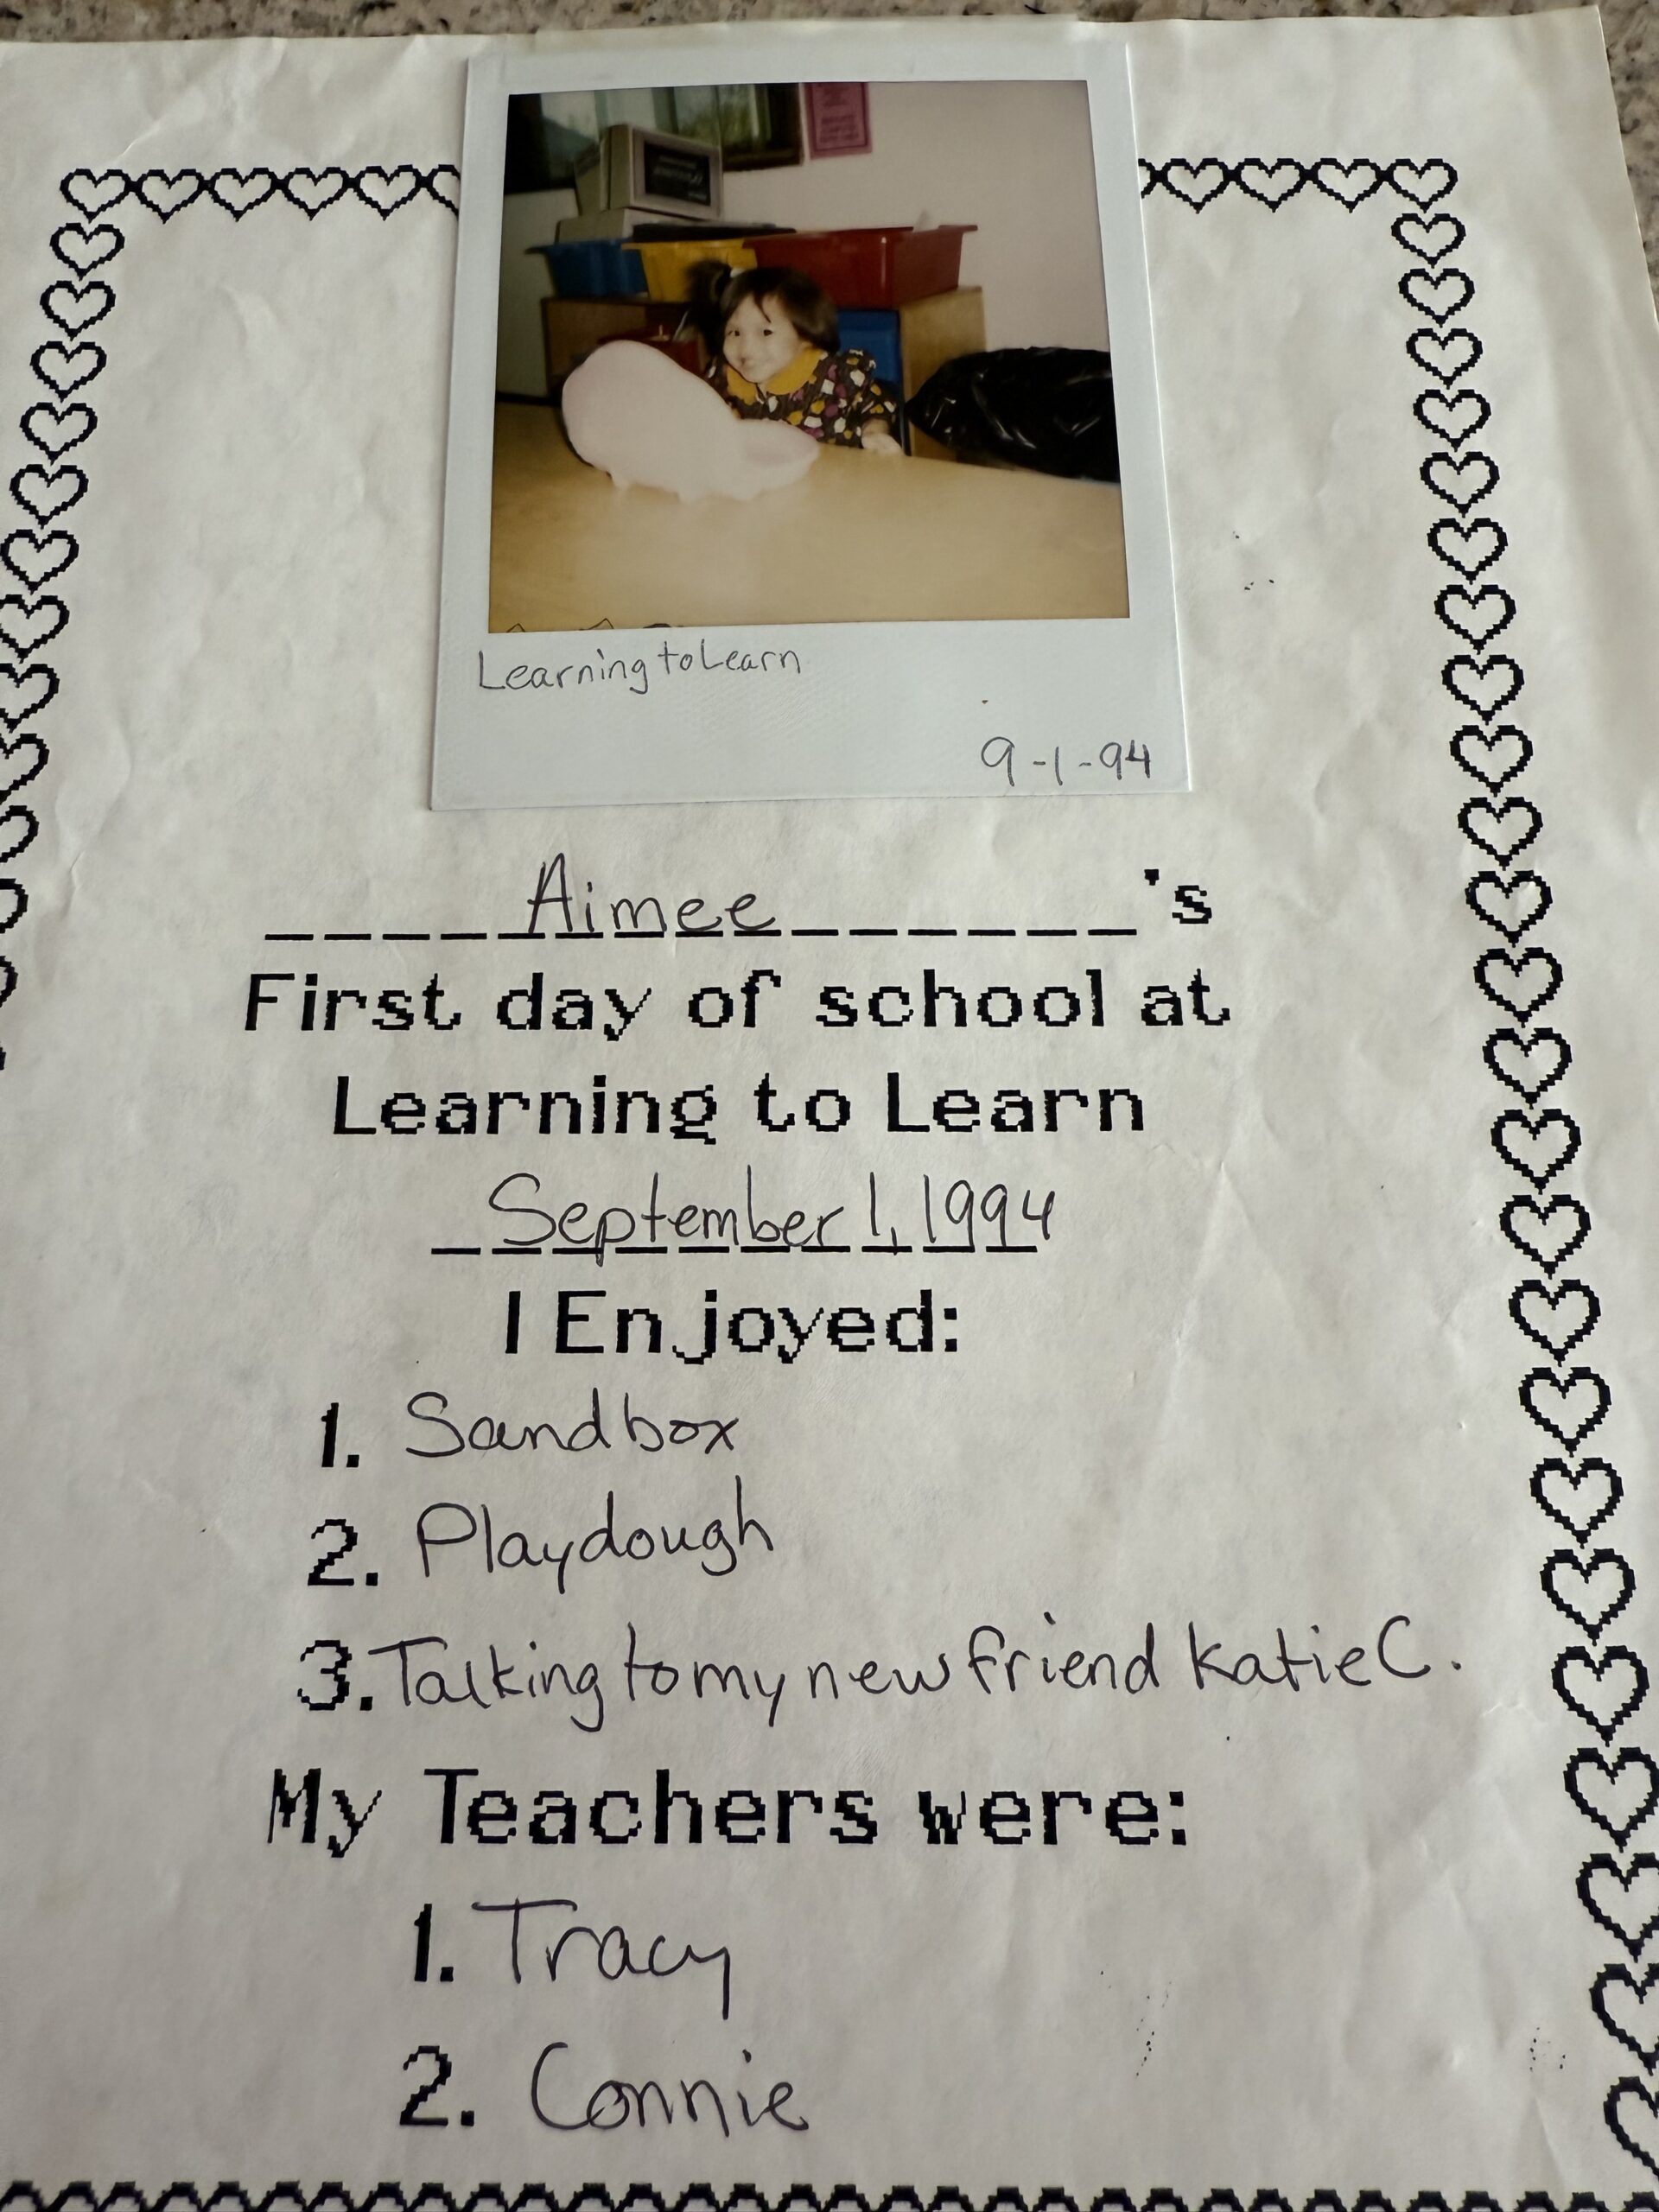 Learning to Learn
9-1-94
Aimee's
First day of school at
Learning to Learn
September 1, 1994
I Enjoyed:
1. Sandbox
2. Playdough
3. Talking to my new friend Katie C.
My Teachers were:
1. Tracy
2. Connie